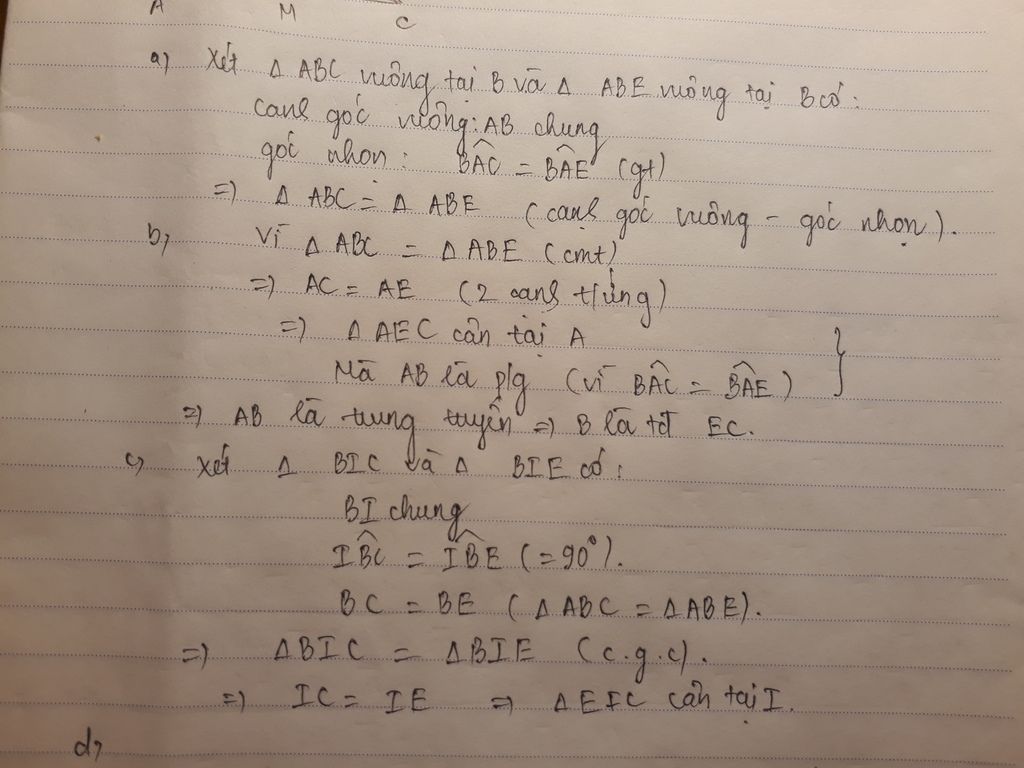 A M C
a) Xét Δ ABC vuông tại B và Δ ABE vuông tại B có:
cạnh góc vuông: AB chung
góc nhọn: BÂC = BÂE (gt)
=) Δ ABC = Δ ABE (cạnh góc vuông - góc nhọn).
b, Vì Δ ABC = Δ ABE (cmt)
=) AC = AE (2 cạnh t/ứng)
=) Δ AEC cân tại A }
Mà AB là p/g (vì BÂC = BÂE)
=) AB là trung tuyến =) B là tđ EC.
c, Xét Δ BIC và Δ BIE có:
BI chung
IB̂C = IB̂E (= 90°).
BC = BE (Δ ABC = Δ ABE).
=) ΔBIC = ΔBIE (c.g.c).
=) IC = IE =) ΔEIC cân tại I.
d,